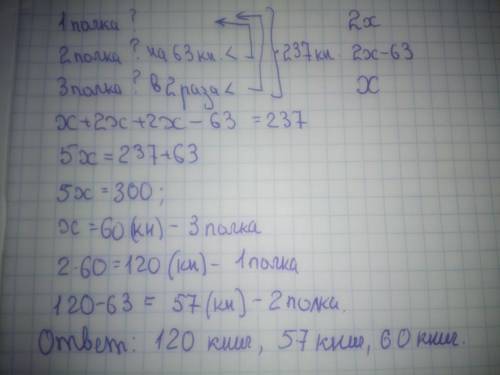 1 полка ? 2x
2 полка ? на 63 кн. < 237 кн. 2x-63
3 полка ? в 2 раза < x
x+2x+2x-63 =237
5x=237+63
5x=300;
x=60(кн)- 3 полка
2·60=120 (кн)- 1 полка
120-63= 57(кн)- 2 полка.
Ответ: 120 книг, 57 книг, 60 книг.